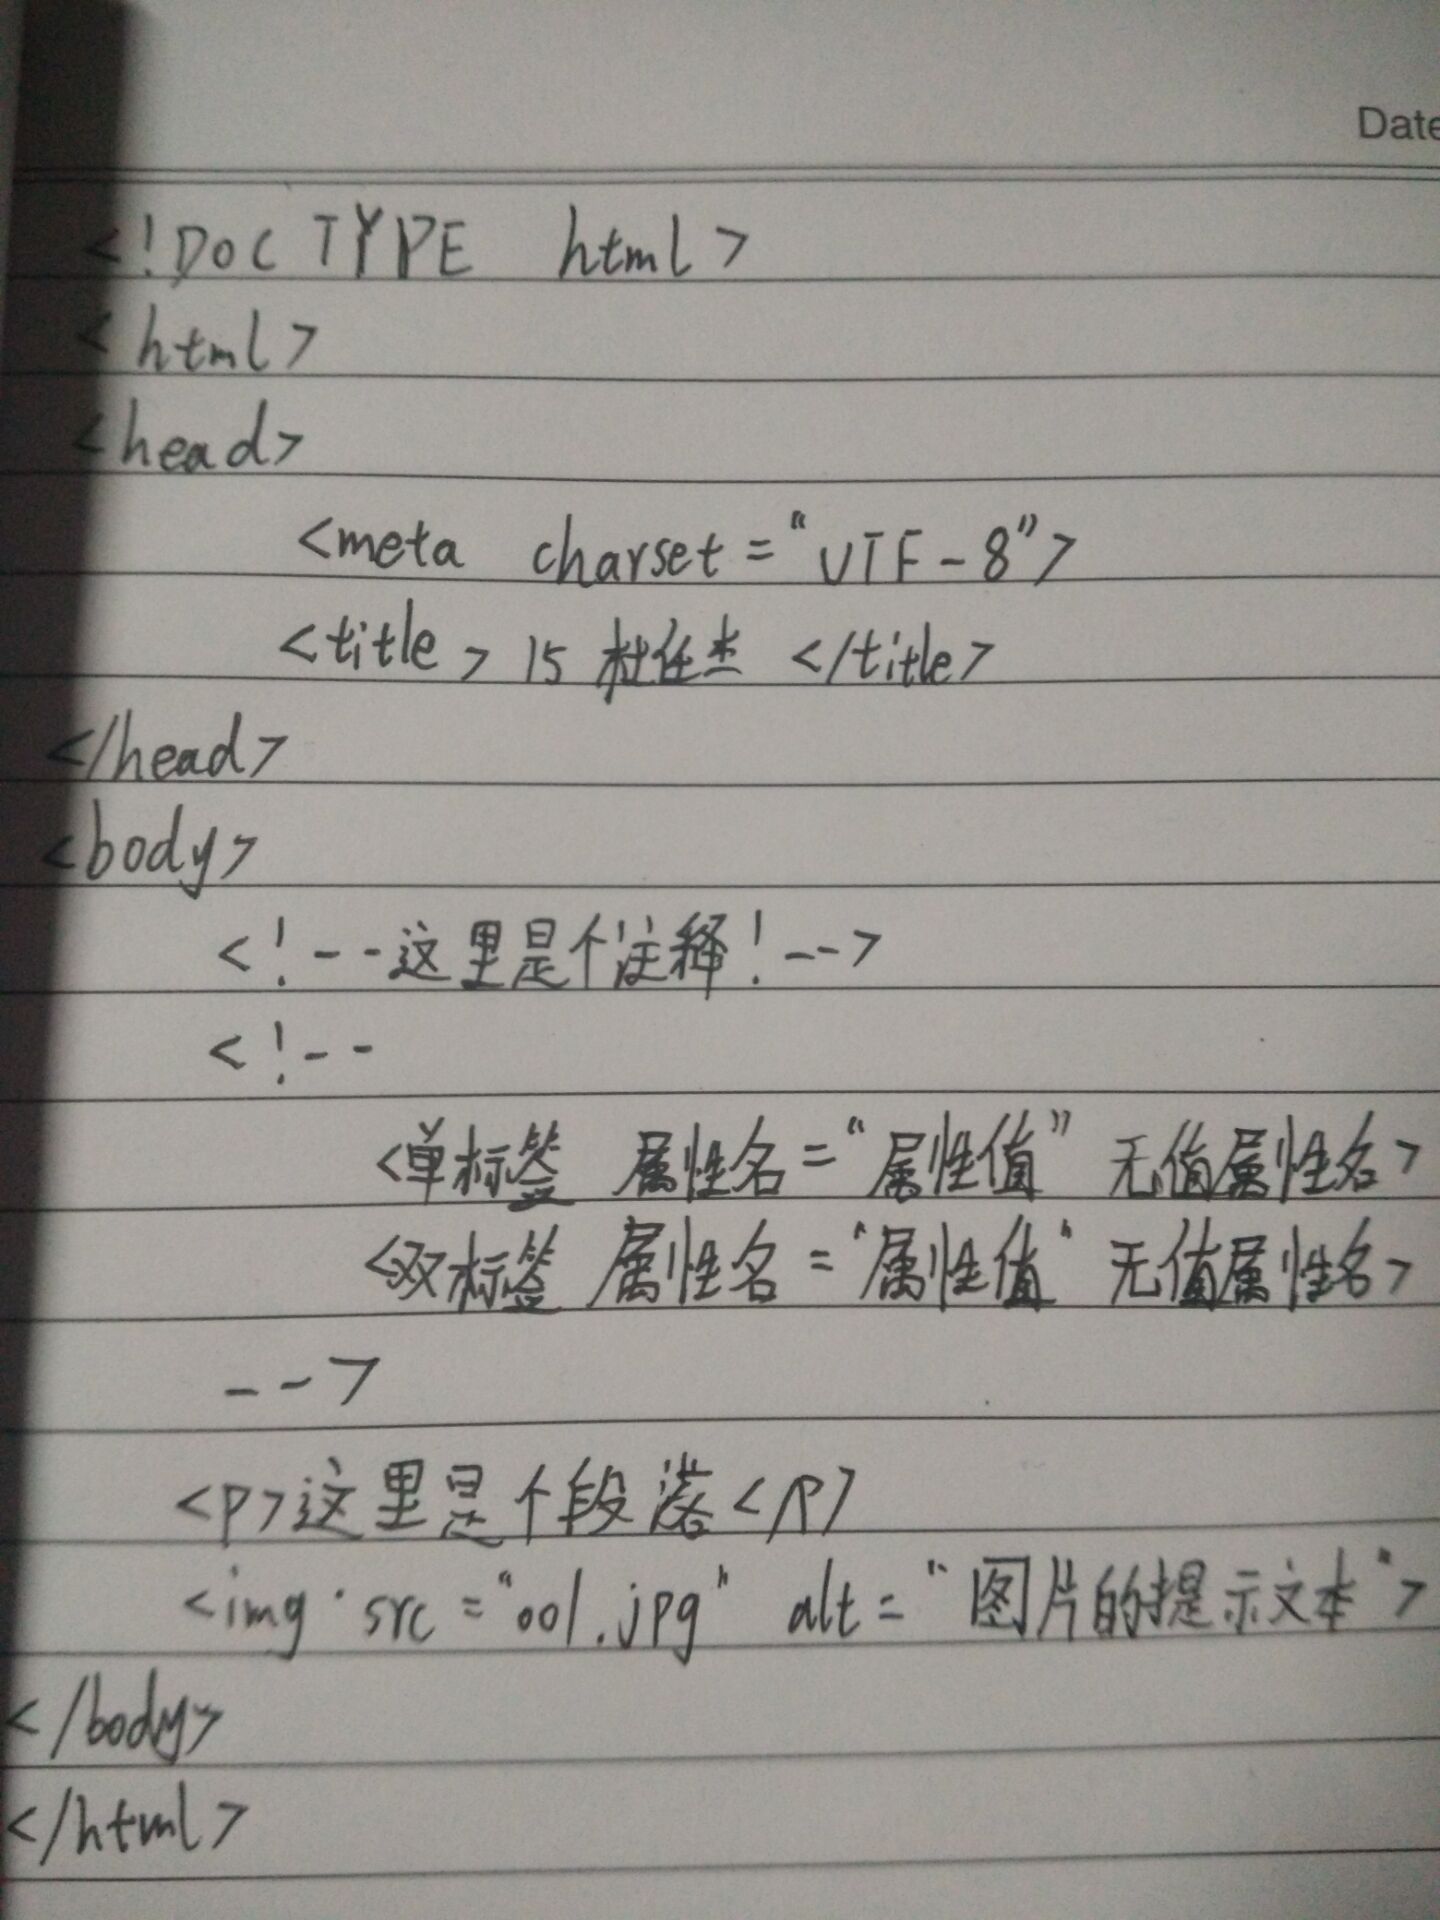 Date
<!DOCTYPE html>
<html>
<head>
<meta charset="UTF-8">
<title>15 杜任杰 </title>
</head>
<body>
<!--这里是个注释!-->
<!--
<单标签 属性名="属性值" 无值属性名>
<双标签 属性名="属性值" 无值属性名>
-->
<p>这里是个段落<p>
<img src="001.jpg" alt="图片的提示文本">
</body>
</html>